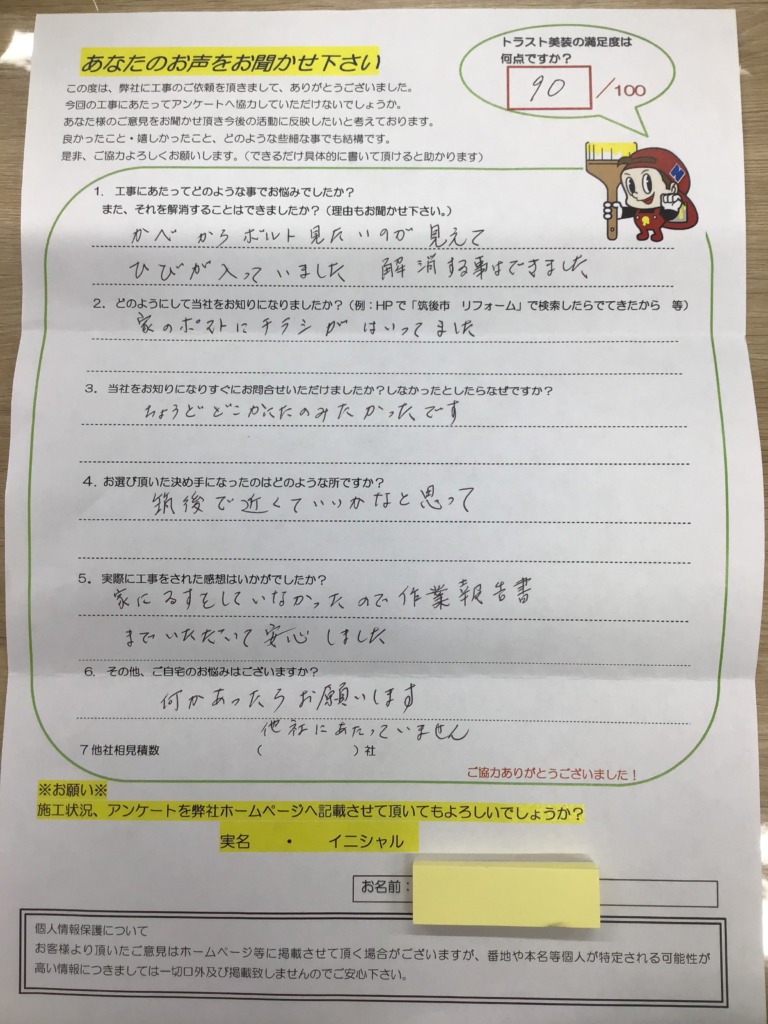 あなたのお声をお聞かせ下さい
トラスト美装の満足度は
何点ですか?
90 /100
この度は、弊社に工事のご依頼を頂きまして、ありがとうございました。
今回の工事にあたってアンケートへ協力していただけないでしょうか。
あなた様のご意見をお聞かせ頂き今後の活動に反映したいと考えております。
良かったこと・嬉しかったこと、どのような些細な事でも結構です。
是非、ご協力よろしくお願いします。(できるだけ具体的に書いて頂けると助かります)
N
1. 工事にあたってどのような事でお悩みでしたか?
また、それを解消することはできましたか?(理由もお聞かせ下さい。)
かべからボルト見たいのが見えて
ひびが入っていました 解消する事はできました
2. どのようにして当社をお知りになりましたか?(例:HPで「筑後市 リフォーム」で検索したらでてきたから 等)
家のポストにチラシがはいってました
3. 当社をお知りになりすぐにお問合せいただけましたか?しなかったとしたらなぜですか?
ちょうどどこかにたのみたかったです
4. お選び頂いた決め手になったのはどのような所ですか?
筑後で近くていいかなと思って
5. 実際に工事をされた感想はいかがでしたか?
家にるすをしていなかったので作業報告書
までいただいて安心しました
6. その他、ご自宅のお悩みはございますか?
何かあったらお願いします
他社にあたっていません
7 他社相見積数 ( )社
ご協力ありがとうございました!
※お願い※
施工状況、アンケートを弊社ホームページへ記載させて頂いてもよろしいでしょうか?
実名 ・ イニシャル
お名前:
個人情報保護について
お客様より頂いたご意見はホームページ等に掲載させて頂く場合がございますが、番地や本名等個人が特定される可能性が
高い情報につきましては一切口外及び掲載致しませんのでご安心下さい。